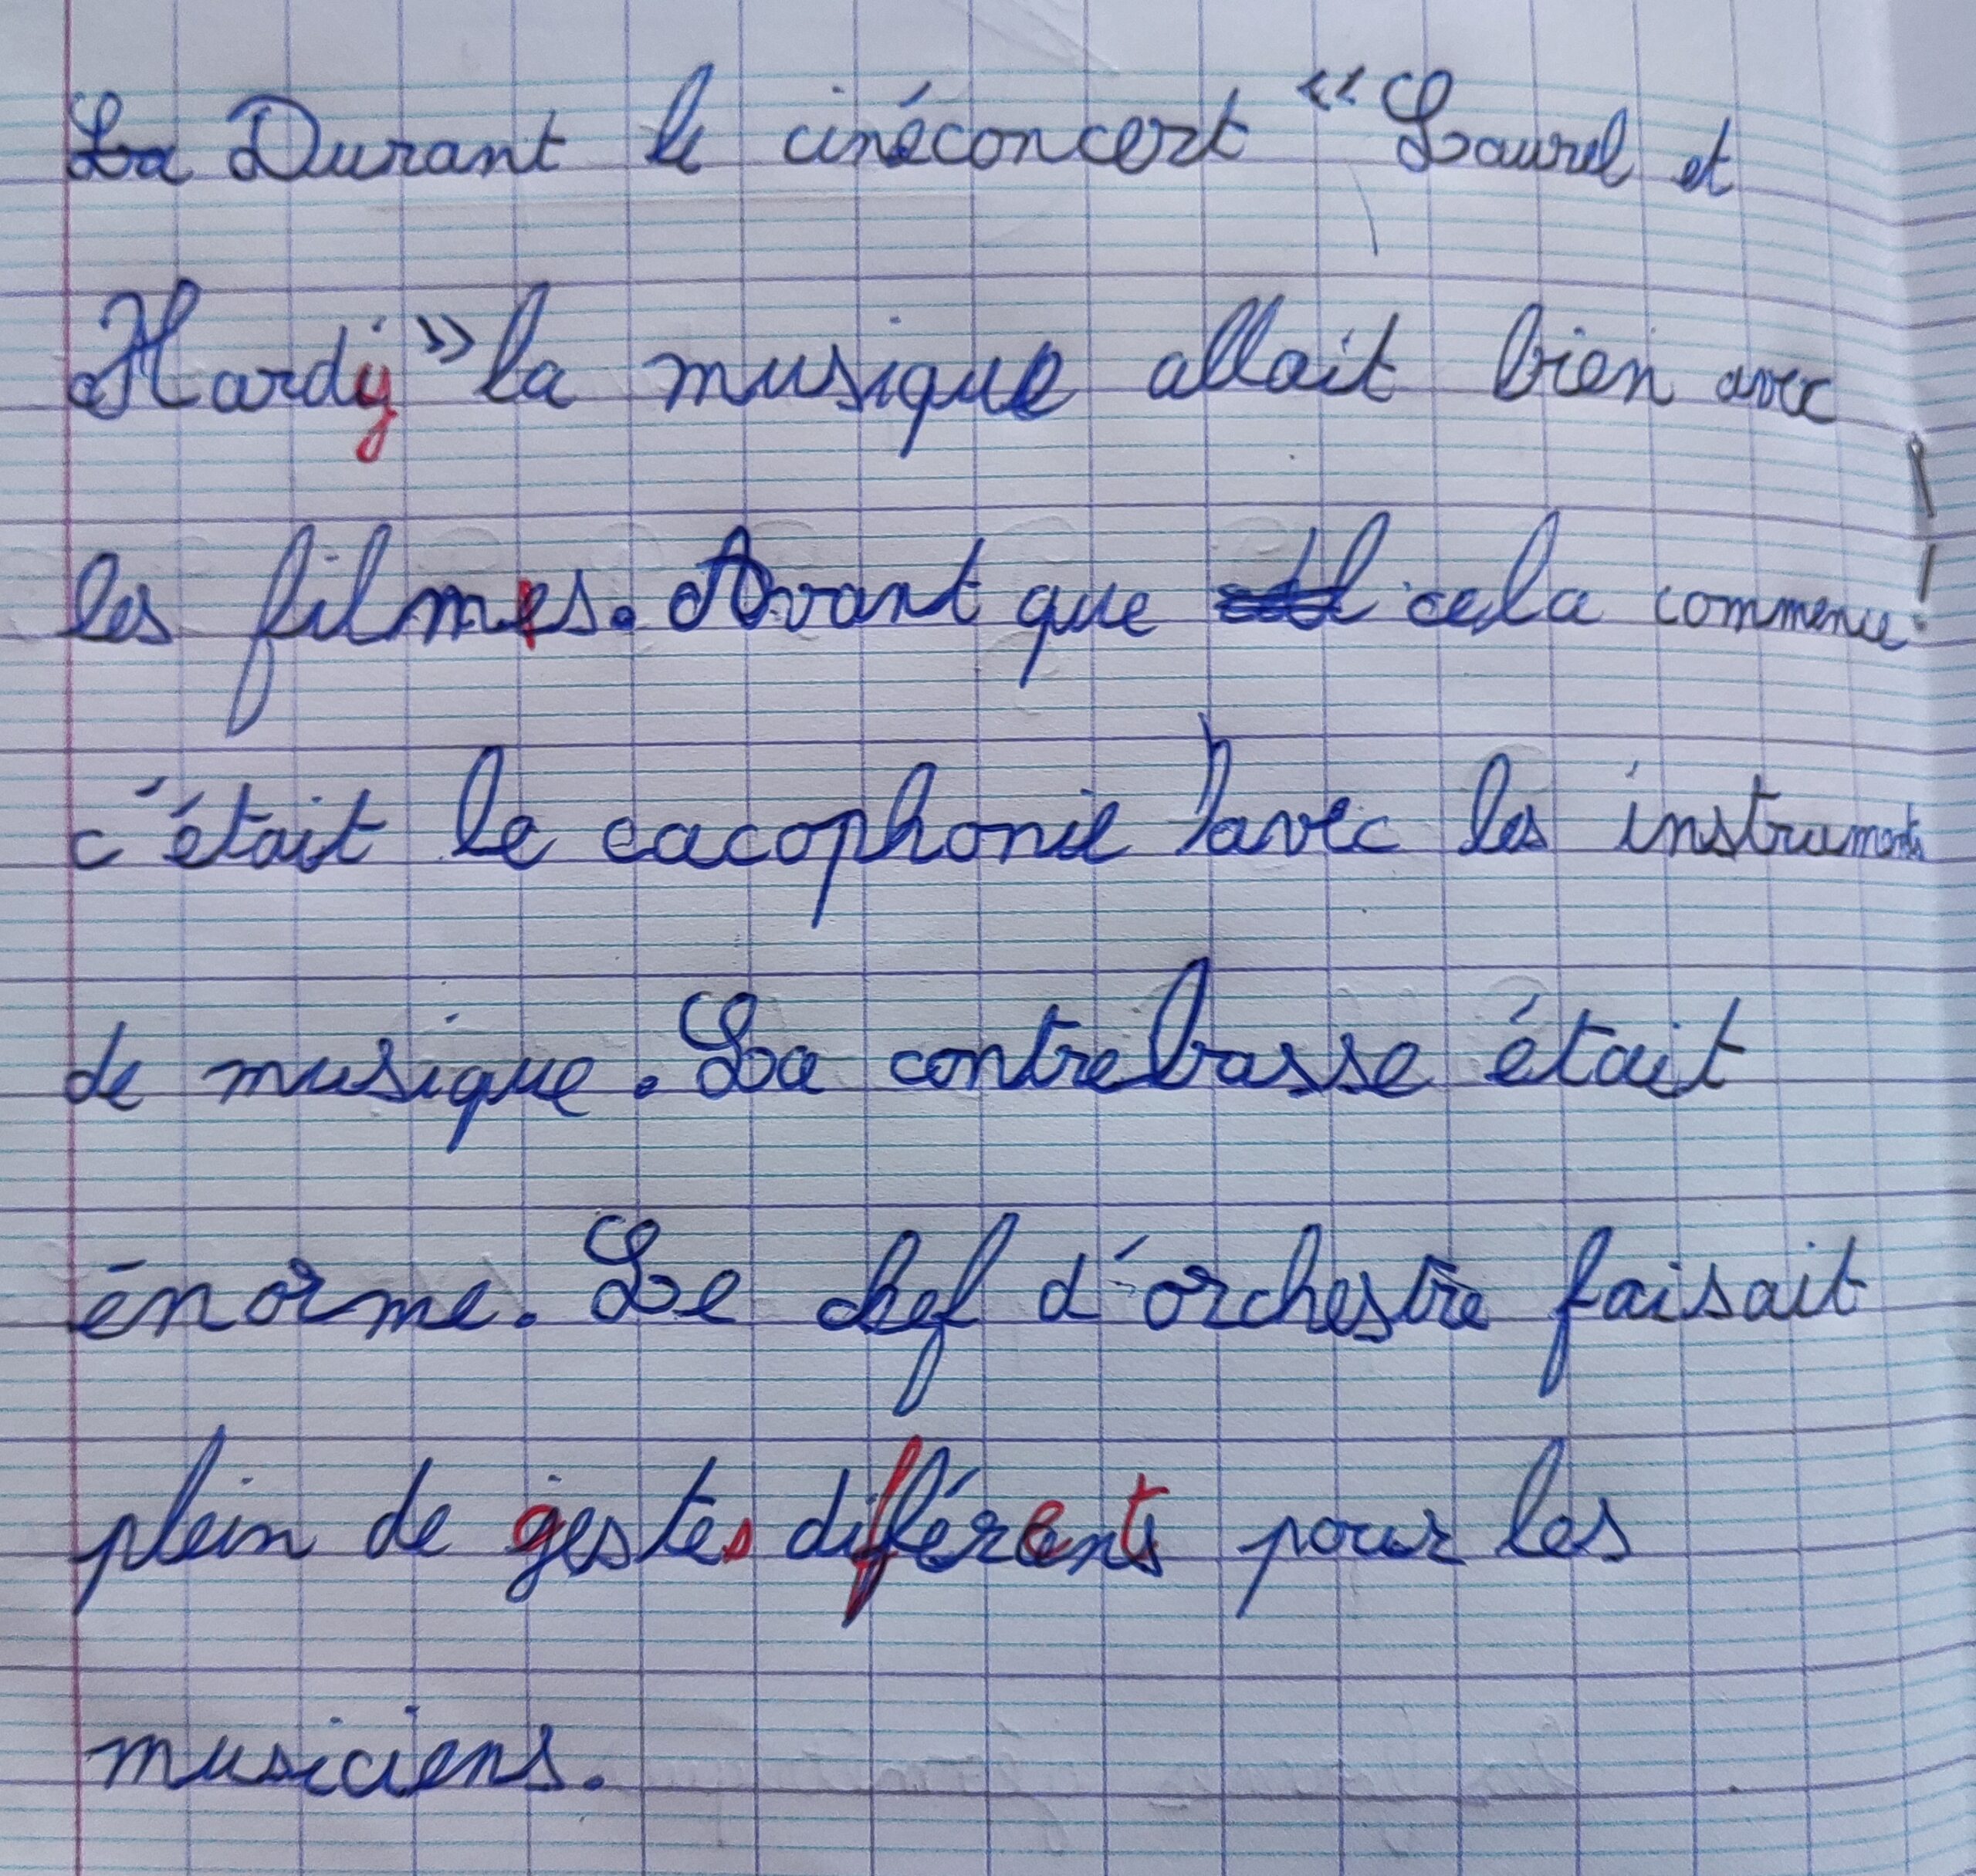 La Durant le cinéconcert "Laurel et
Hardy" la musique allait bien avec
les films. Avant que cela commence
c'était la cacophonie avec les instruments
de musique. La contrebasse était
énorme. Le chef d'orchestre faisait
plein de gestes différents pour les
musiciens.